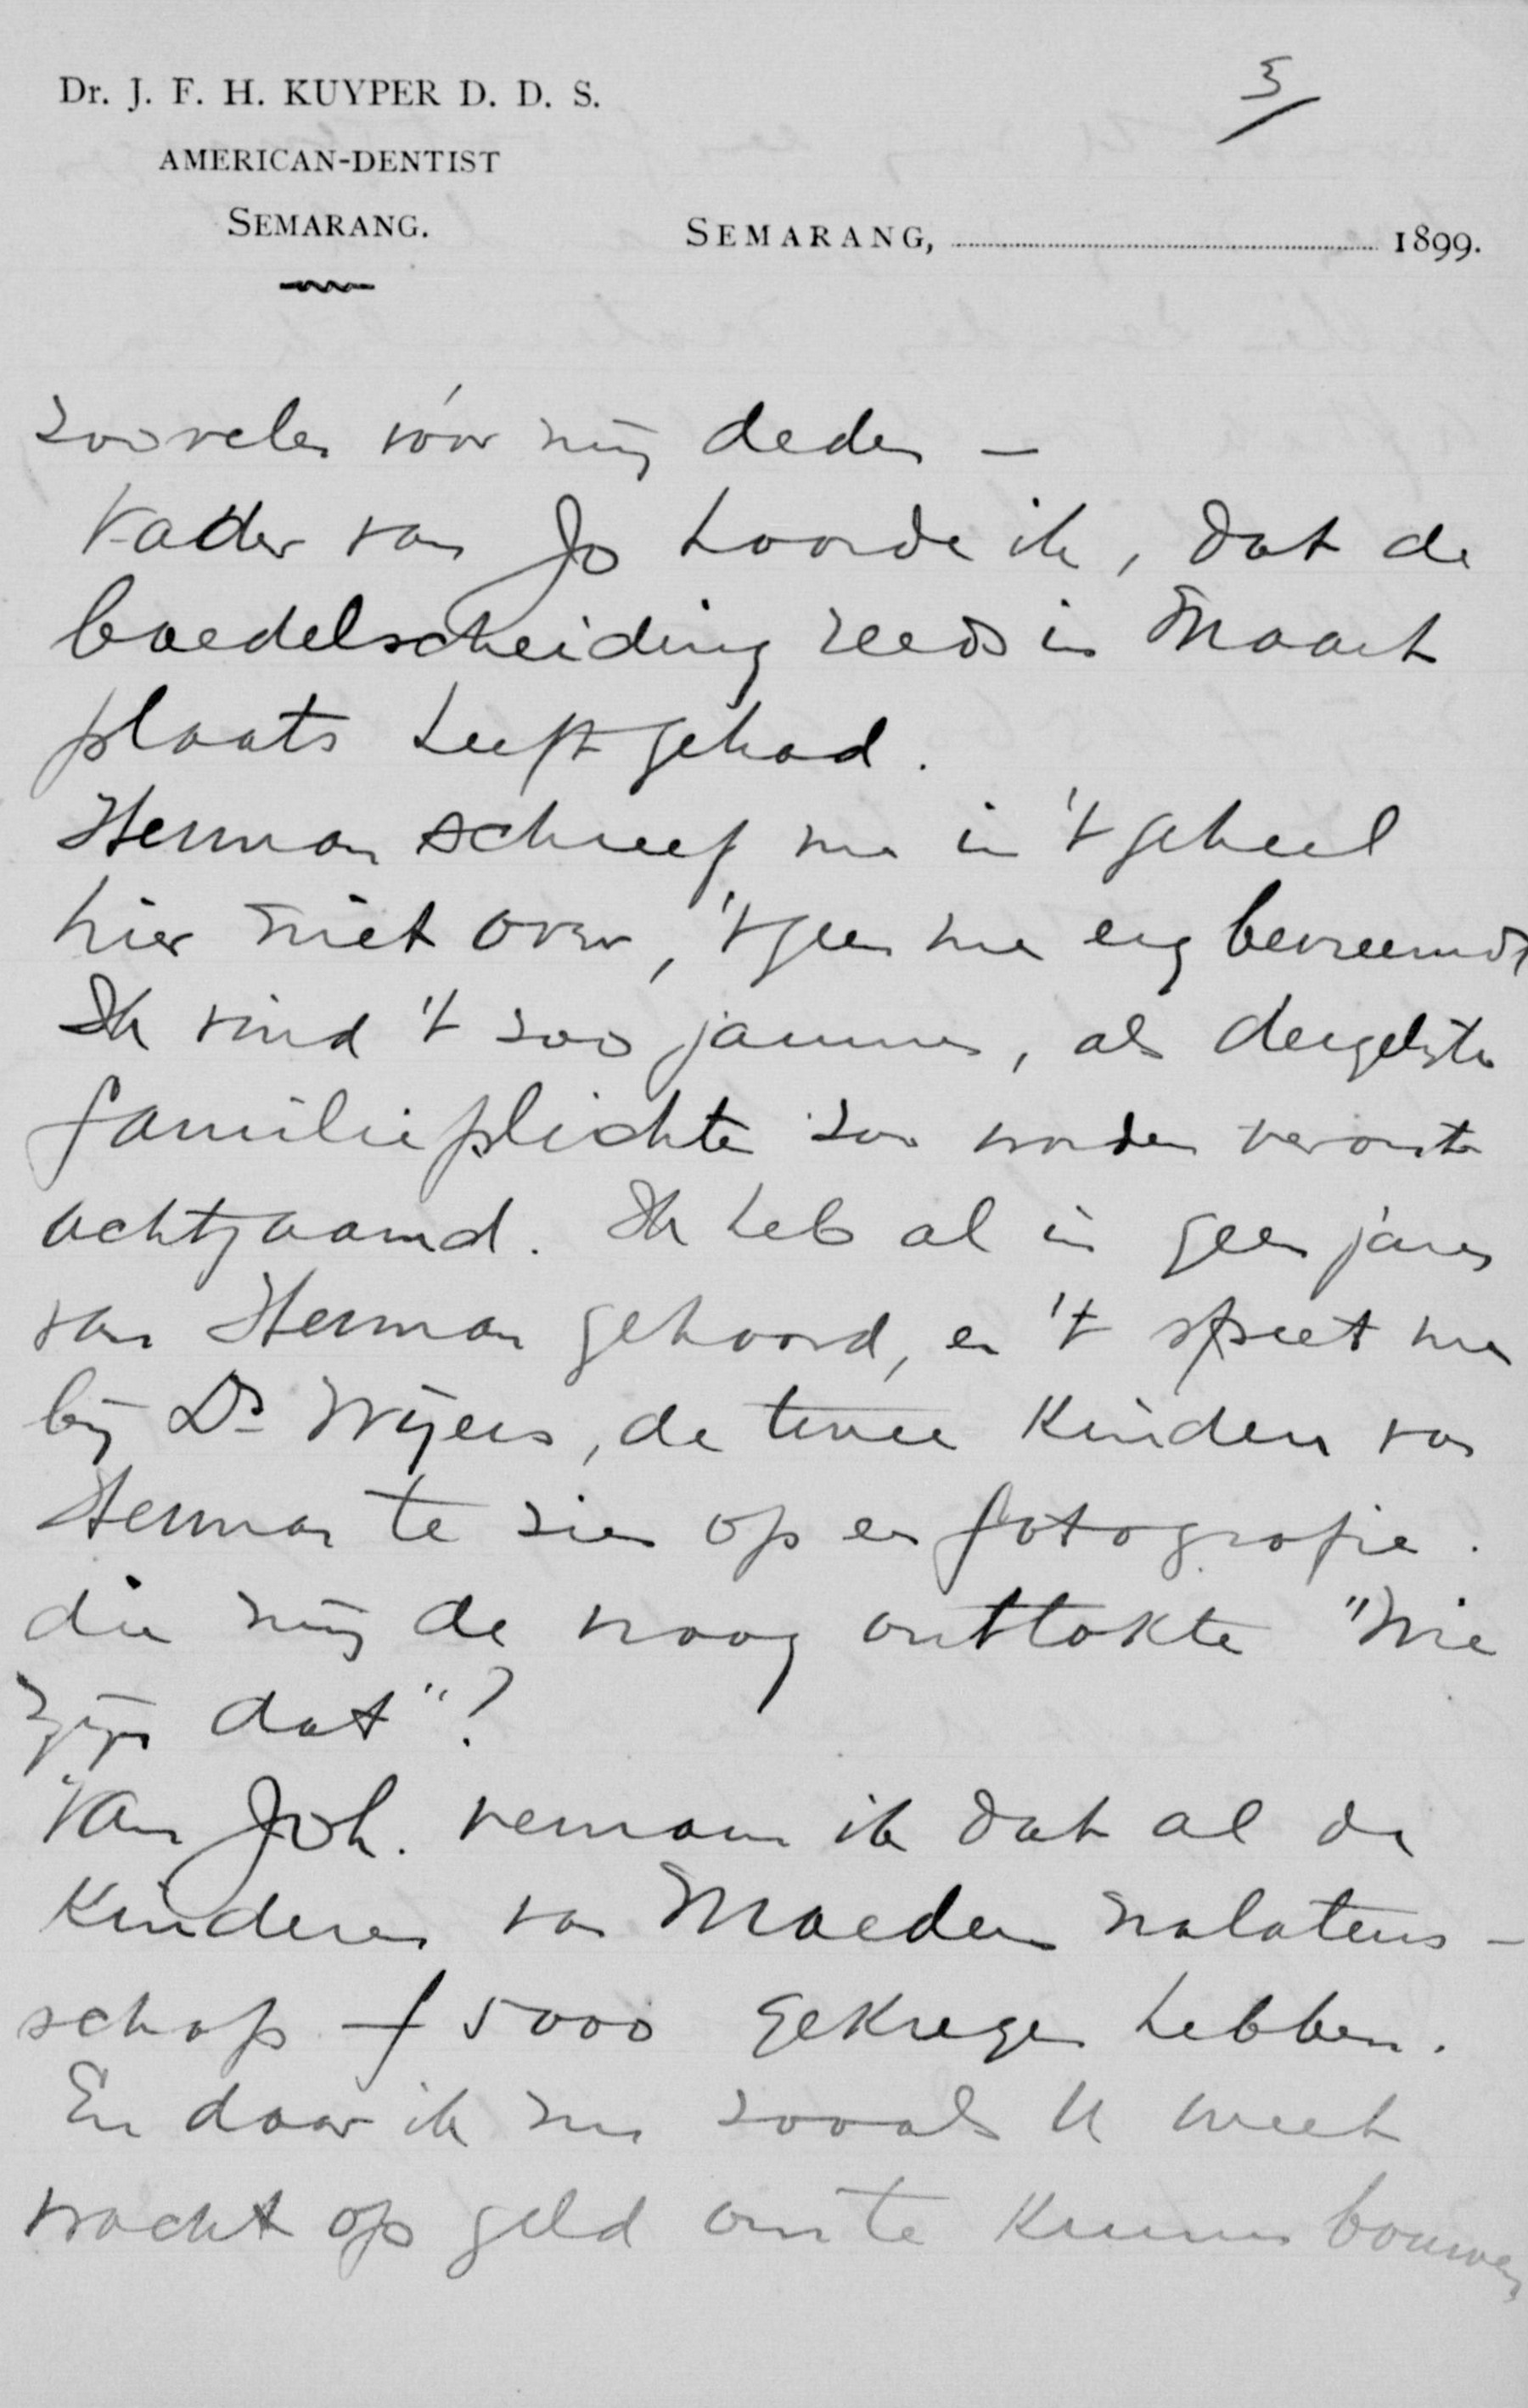 Dr. J. F. H. KUYPER D. D. S.
AMERICAN-DENTIST
SEMARANG.
3/
SEMARANG, 1899.
zoovelen vóór mij deden –
Vader van Jo hoorde ik, dat de
boedelscheiding reeds in Maart
plaats heeft gehad.
Herman schreef me in 't geheel
hier niet over, 't geen me erg bevreemdt
Ik vind 't zoo jammer, als dergelijke
familieplichten zoo worden veront
achtzaamd. Ik heb al in geen jaren
van Herman gehoord, en 't speet me
bij Ds Wijers, de twee kinderen van
Herman te zien op een fotografie.
die mij de vraag ontlokte "Wie
zijn dat"?
Van Joh. vernam ik dat al de
kinderen van Moeders nalaten-
schap f 5000 gekregen hebben.
En daar ik nu zooals U weet
wacht op geld om te kunnen bouwen